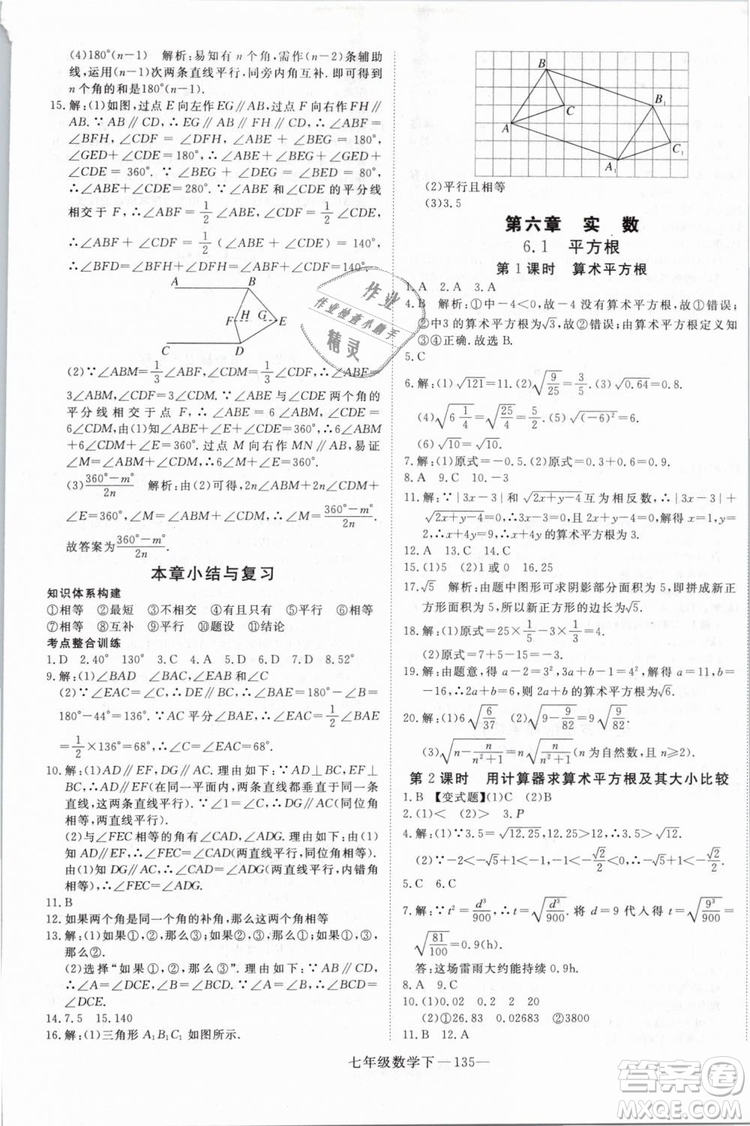 (4)180°(n-1)　解析:易知有 n 个角,需作(n-2)条辅助
线,运用(n-1)次两条直线平行,同旁内角互补.故
n 个角的和是180°(n-1).
15.解:(1)如图,过点 E 向左作 EG∥AB,过点 F 向右作 FH∥
AB.∵AB∥CD,∴EG∥AB∥FH∥CD,∴∠ABF=
∠BFH,∠CDF=∠DFH,∠ABE+∠BEG=180°,
∠GED+∠CDE=180°,∴∠ABE+∠BEG+∠GED+
∠CDE=360°.∵∠BED=∠BEG+∠DEG=80°,
∴∠ABE+∠CDE=280°.∵∠ABE和∠CDE的平分线
相交于 F,∴∠ABF=1/2∠ABE,∠CDF=1/2∠CDE,
∴∠ABF+∠CDF=1/2(∠ABE+∠CDE)=140°,
∴∠BFD=∠BFH+∠DFH=∠ABF+∠CDF=140°.
A B
F H G E
C D
(2)∵∠ABM=1/3∠ABF,∠CDM=1/3∠CDF,∴∠ABF=
3∠ABM,∠CDF=3∠CDM.∵∠ABE与∠CDE两个角的
平分线相交于点 F,∴∠ABE=6∠ABM,∠CDE=
6∠CDM.由(1)可知∠ABE+∠E+∠CDE=360°,∴6∠ABM
+6∠CDM+∠E=360°.过点 M 向右作 MN∥AB,易证
∠M=∠ABM+∠CDM,∴6∠M+∠E=360°.
(3)(360°-m°)/2n　解析:由(2)可得,2n∠ABM+2n∠CDM+
∠E=360°,∠M=∠ABM+∠CDM,∴∠M=(360°-m°)/2n.
故答案为(360°-m°)/2n.
本章小结与复习
知识体系构建
①相等　②最短　③不相交　④有且只有　⑤相等
⑥相等　⑦互补　⑧平行　⑨相等　⑩题设　⑪结论
考点整合训练
1.D　2.40°　130°　3.C　4.C　5.D　6.D　7.D　8.52°
9.解:(1)∠BAD　∠EAC　∠BAD　∠EAC
(2)∵∠EAC=∠C,∴DE∥BC,∴∠BAE=180°-∠B=
180°-44°=136°.∵AC平分∠BAE,∴∠C=∠EAC=
1/2×136°=68°,∴∠C=∠EAC=68°.
10.解:(1)AD∥EF,DG∥AC.∵AD⊥BC,EF⊥BC,
∴AD∥EF(在同一平面内,垂直于同一条直线的两条
直线平行).∵∠BDG=∠C,∴DG∥AC(同位角相等,
两直线平行).
(2)与∠FEC相等的角有∠CAD,∠ADG.理由如下:
由(1)知AD∥EF,DG∥AC,∴∠FEC=∠CAD(两直
线平行,同位角相等),∠CAD=∠ADG(两直线平行,内
错角相等),∴与∠FEC相等的角有∠CAD,∠ADG.
11.B
12.如果两个角是同一个角的补角,那么这两个角相等
13.解:(1)如果①,②,那么③;如果①,③,那么②;如果②,③,
那么①.
(2)选择“如果①,②,那么③”,证明如下:∵AB∥CD,
∴∠B=∠DCE.∵∠B=∠D,∴∠D=∠DCE,
14.7.5　15.140
16.解:(1)三角形 A₁B₁C₁ 如图所示.
B B₁
A C C₁
A₁
(2)平行且相等
(3)3.5
第六章　实　数
6.1　平方根
第1课时　算术平方根
1.A　2.D　3.C
4.B　解析:①中-4<0,故-4没有算术平方根,故①错误;
②中√9=3,3的算术平方根为√3,故②错误;由算术平方根定义知
③正确.故选B.
5.C
6.解:(1)√121=11.(2)√(9/25)=3/5.(3)√0.64=0.8.
(4)√(6 1/4)=√(25/4)=5/2.(5)√(-6)²=6.
7.解:(1)原式=-0.9.(2)原式=10.
8.A　9.C　10.-3
11.解:∵|3x-3|和√(2x+y-4)互为相反数,∴|3x-3|+
√(2x+y-4)=0,∴3x-3=0,2x+y-4=0,解得x=1,y=
2,∴x+4y=9,∴x+4y的算术平方根为3.
12.A　13.C　14.C
15.(1)5　(2)1或0　16.25
17.√5　解析:由题中图形可求阴影部分面积为5,即拼成新正
方形面积为5,所以新正方形的边长为√5.
18.解:(1)原式=25×1/5-1/4-3/4×1=4.
(2)原式=5+8-6=7.
19.解:由题意,得a-2=3²,a+b-1=(-6)²... b=
-16,∴√2a=6,∴2a+b的算术平方根为√6.
20.解:(1)√(6/37)　(2)√(9-9/82)=9√(9/82)
(3)√(n-n/(n²+1))=n√(n/(n²+1)),且n≥2
第2课时　用计算器求算术平方根及其大小比较
1.B　【变式题】(1)C　(2)B
2.(1)<　(2)>　3.P
4.解:(1)∵3.5=√12.25,12.25>12,∴√12<3.5.
(2)∵-2<-√5+1<-1,-1<-√2/2<0,∴-√5+1<-√2/2.
5.C　6.C
7.解:∵t²=d³/900,∴t=√(d³/900).把d=9代入,得t=√(9³/900)=
√(81/100)=0.9(h).
答:这场雷雨大约能持续0.9h.
8.A　9.C
10.(1)0.02　0.2　2　20
(2)①0.2683　②0.02683　③3800
11.B　12.A
七年级数学下—135—
作业
作业检查小帮手
精灵
答案圈
MXQE.COM